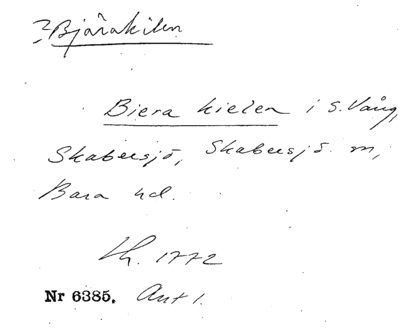 ? Bjärakilen
Biera kielen i S. Vång,
Skabersjö, Skabersjö sn,
Bara hd.
Lh. 1772
Nr 6385. Akt 1.